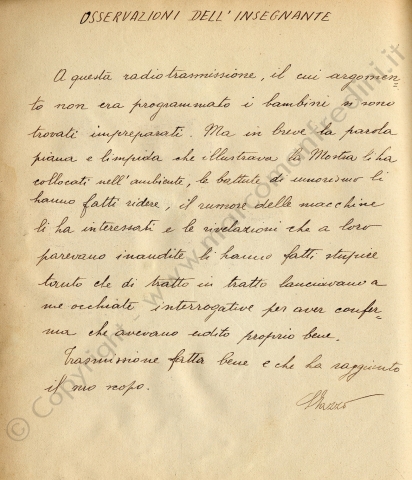 OSSERVAZIONI DELL'INSEGNANTE
A questa radiotrasmissione, il cui argomen-
to non era programmato i bambini si sono
trovati impreparati. Ma in breve la parola
piana e limpida che illustrava la Mostra li ha
collocati nell'ambiente, le battute di umorismo li
hanno fatti ridere, il rumore delle macchine
li ha interessati e le rivelazioni che a loro
parevano inaudite li hanno fatti stupire
tanto che di tratto in tratto lanciavano a
me occhiate interrogative per aver confer-
ma che avevano udito proprio bene.
Trasmissione fatta bene e che ha raggiunto
il suo scopo.